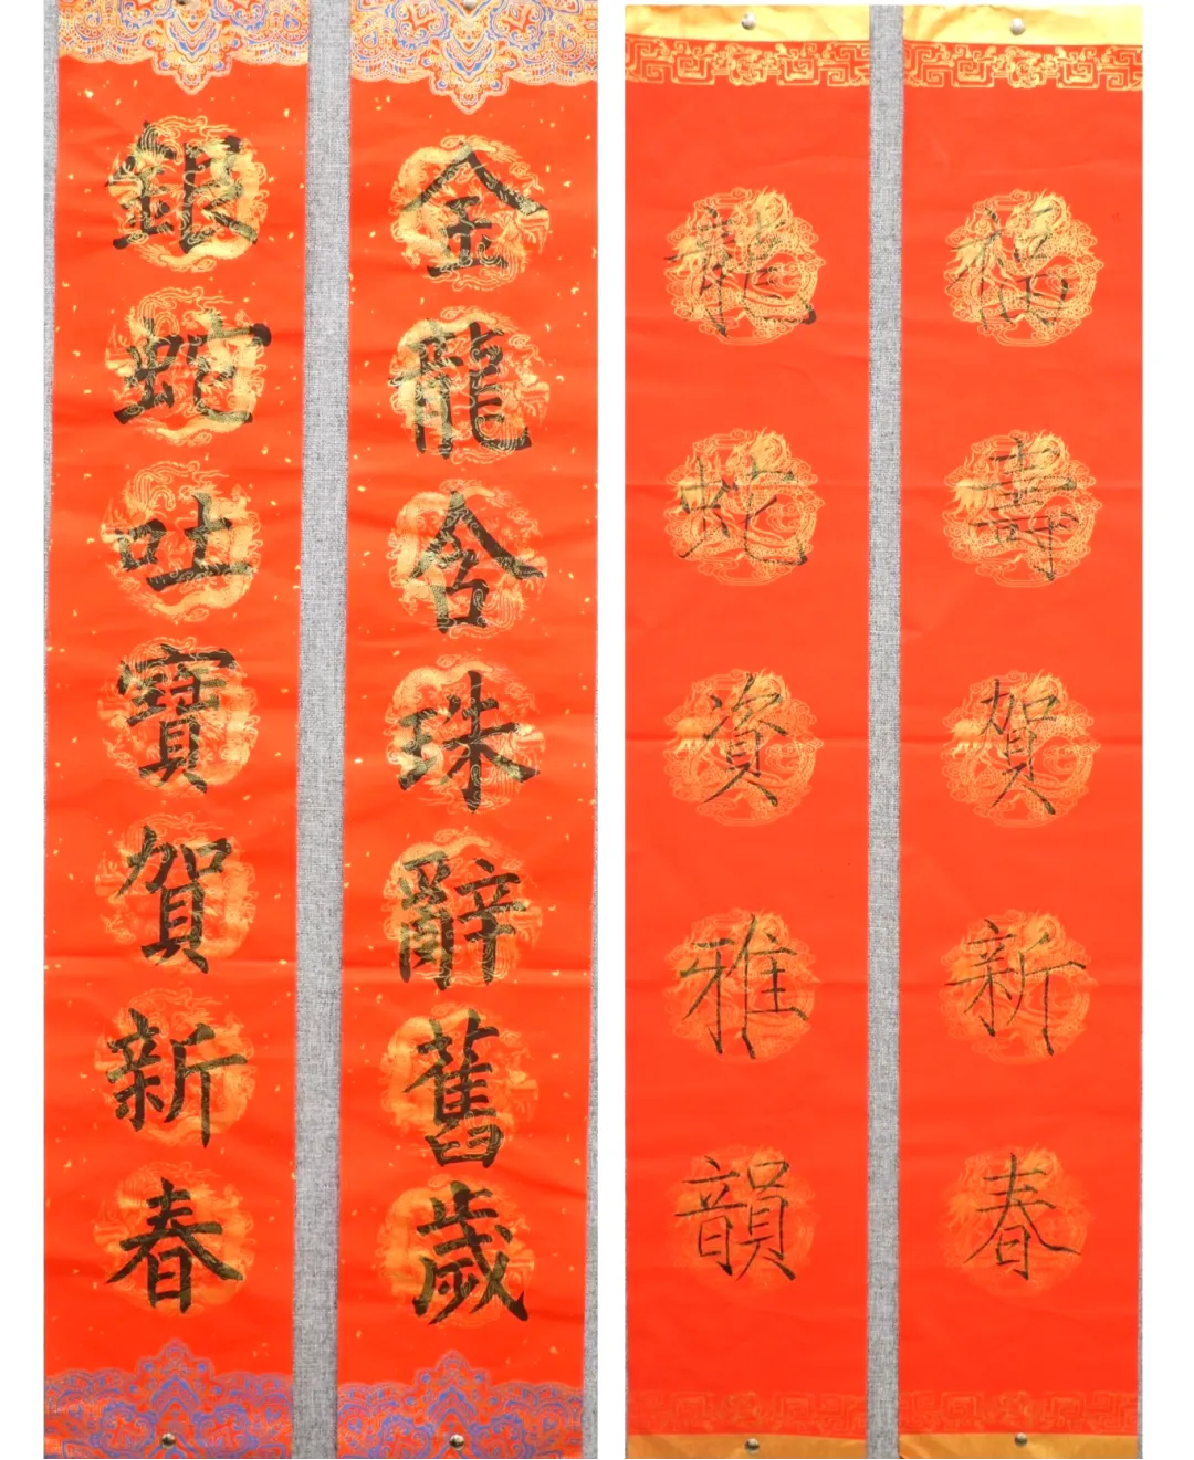 福壽賀新春
龍蛇資雅韻
金龍含珠辭舊歲
銀蛇吐寶賀新春